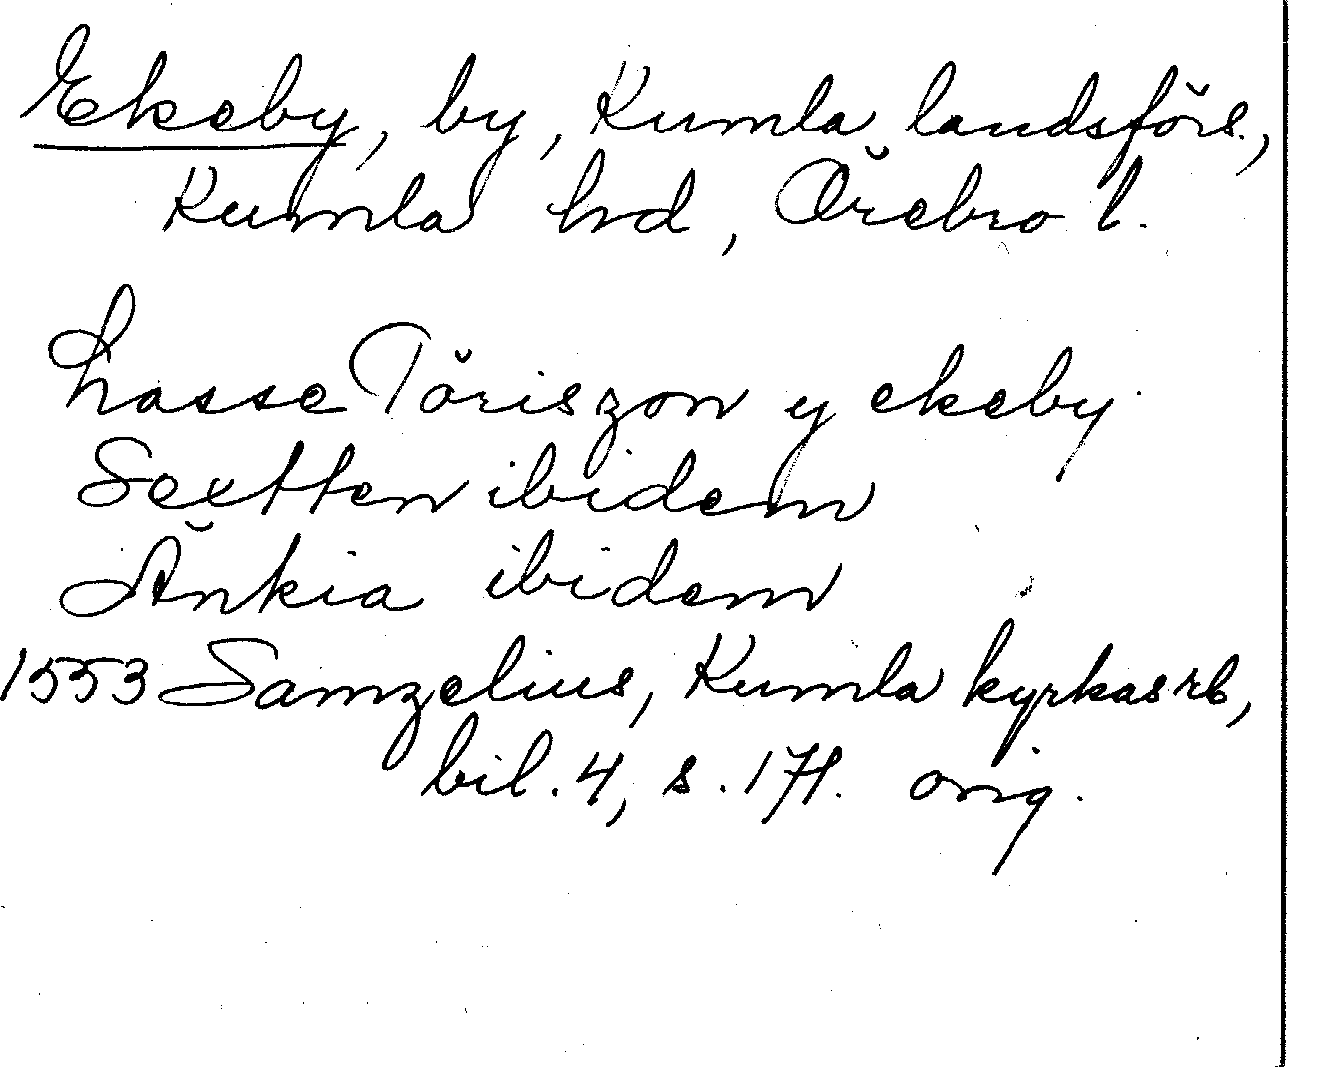 Ekeby, by, Kumla landsförs.,
Kumla hd, Örebro l.
Lasse Töriszon y ekeby
Sextten ibidem
Änkia ibidem
1553 Samzelius, Kumla kyrkas rb,
bil. 4, s. 171. orig.